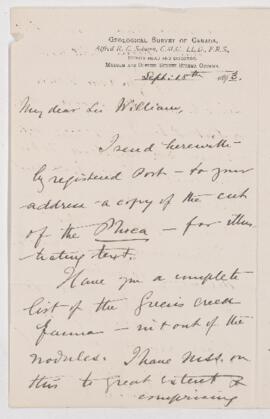 GEOLOGICAL SURVEY OF CANADA,
Alfred R. C. Selwyn, C.M.G., LL.D., F.R.S.,
DEPUTY HEAD AND DIRECTOR.
MUSEUM AND OFFICE: SUSSEX STREET, OTTAWA.
Sept. 18th 1893.
My dear Sir William,
I send herewith
by registered Post - to your
address - a copy of the cut
of the Phoca - for illus
trating text.
Have you a complete
list of the Green's Creek
fauna - in & out of the
nodules. I have mss. on
this to great extent &
comprising